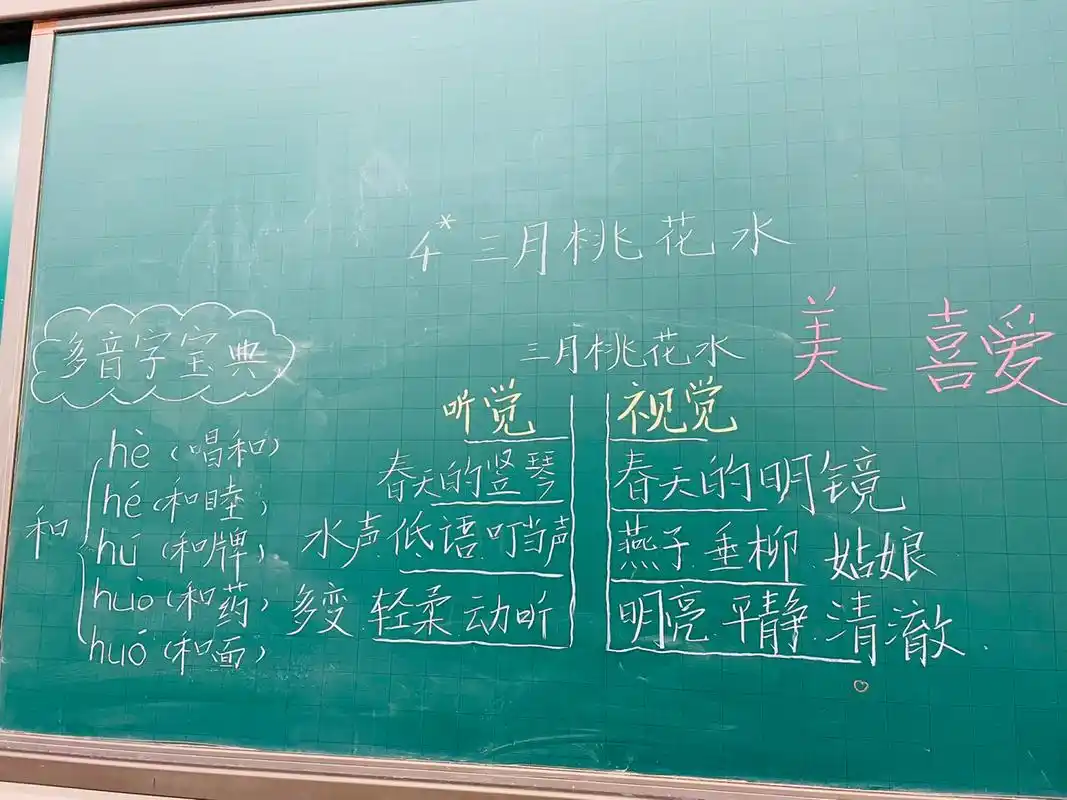 4* 三月桃花水
多音字宝典
和
hè（唱和）
hé（和睦）
hú（和牌）
huò（和药）
huó（和面）
三月桃花水
美 喜爱
听觉
春天的竖琴
水声 低语 叮当声
多变 轻柔 动听
视觉
春天的明镜
燕子 垂柳 姑娘
明亮 平静 清澈